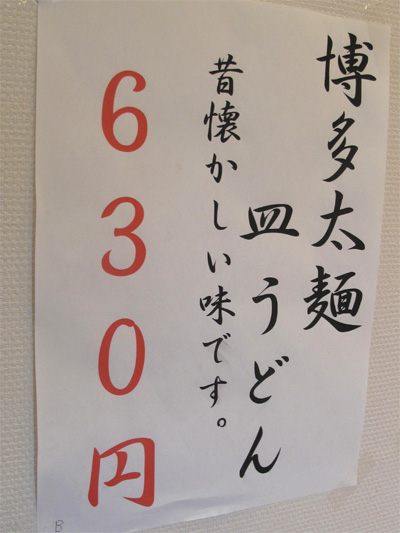 博多太麺
皿うどん
昔懐かしい味です。
630円
B